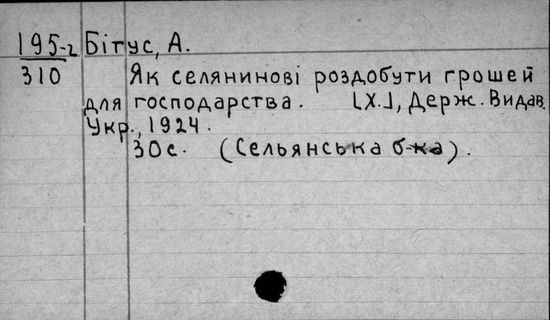 195-2 Бітус, А.
310 Як селянинові роздобути грошей
для господарства. [Х.], Держ. Видав.
Укр., 1924.
30 с. (Сельянська б-ка).